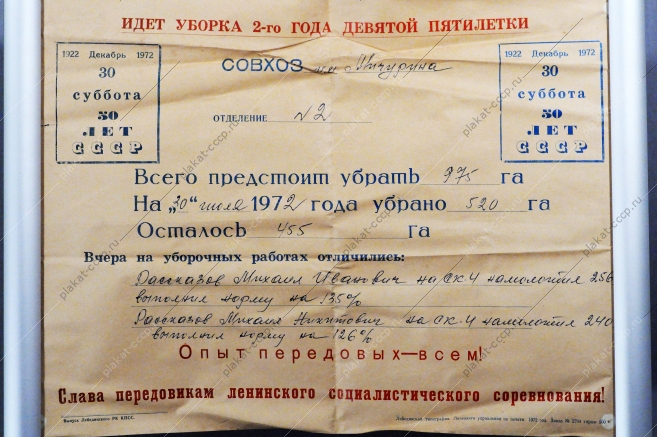 ИДЕТ УБОРКА 2-го ГОДА ДЕВЯТОЙ ПЯТИЛЕТКИ
1922 Декабрь 1972
30
суббота
50
ЛЕТ
СССР
1922 Декабрь 1972
30
суббота
50
ЛЕТ
СССР
СОВХОЗ им Мичурина
ОТДЕЛЕНИЕ №2
Всего предстоит убрать 975 га
На „30“ июля 1972 года убрано 520 га
Осталось 455 га
Вчера на уборочных работах отличились:
Рассказов Михаил Иванович на СК-4 намолотил 256
выполнил норму на 135%
Рассказов Михаил Никитович на СК-4 намолотил 240
выполнил норму на 126%
Опыт передовых—всем!
Слава передовикам ленинского социалистического соревнования!
Выпуск Лебедянского РК КПСС.
Лебедянская типография управления по печати 1972 год. Заказ № тираж 500
plakat-cccp.ru